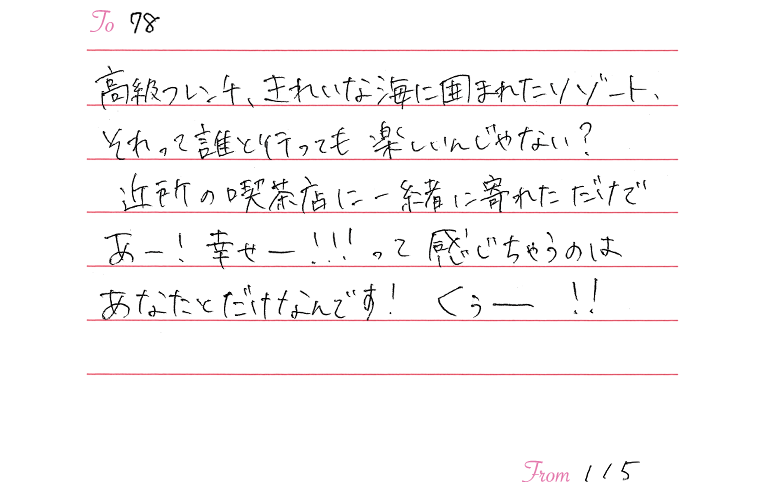 To 78
高級フレンチ、きれいな海に囲まれたリゾート、
それって誰と行っても 楽しいんじゃない?
近所の喫茶店に一緒に寄れただけで
あー! 幸せー!!! って 感じちゃうのは
あなたとだけなんです! くぅー !!
From 115